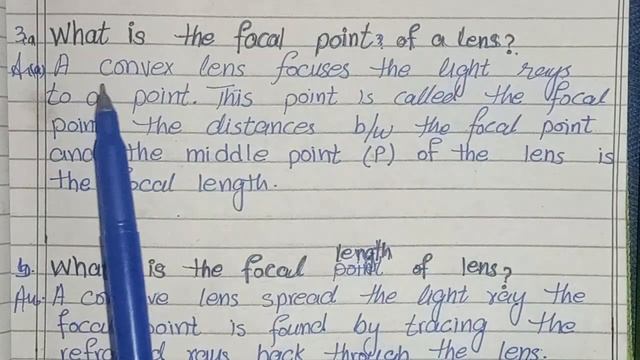 3.a What is the focal point of a lens?
Ans(a) A convex lens focuses the light rays
to a point. This point is called the focal
point the distances b/w the focal point
and the middle point (P) of the lens is
the focal length.
b. What is the focal length point of lens?
Ans. A concave lens spread the light ray the
focal point is found by tracing the
refracted rays back through the lens.